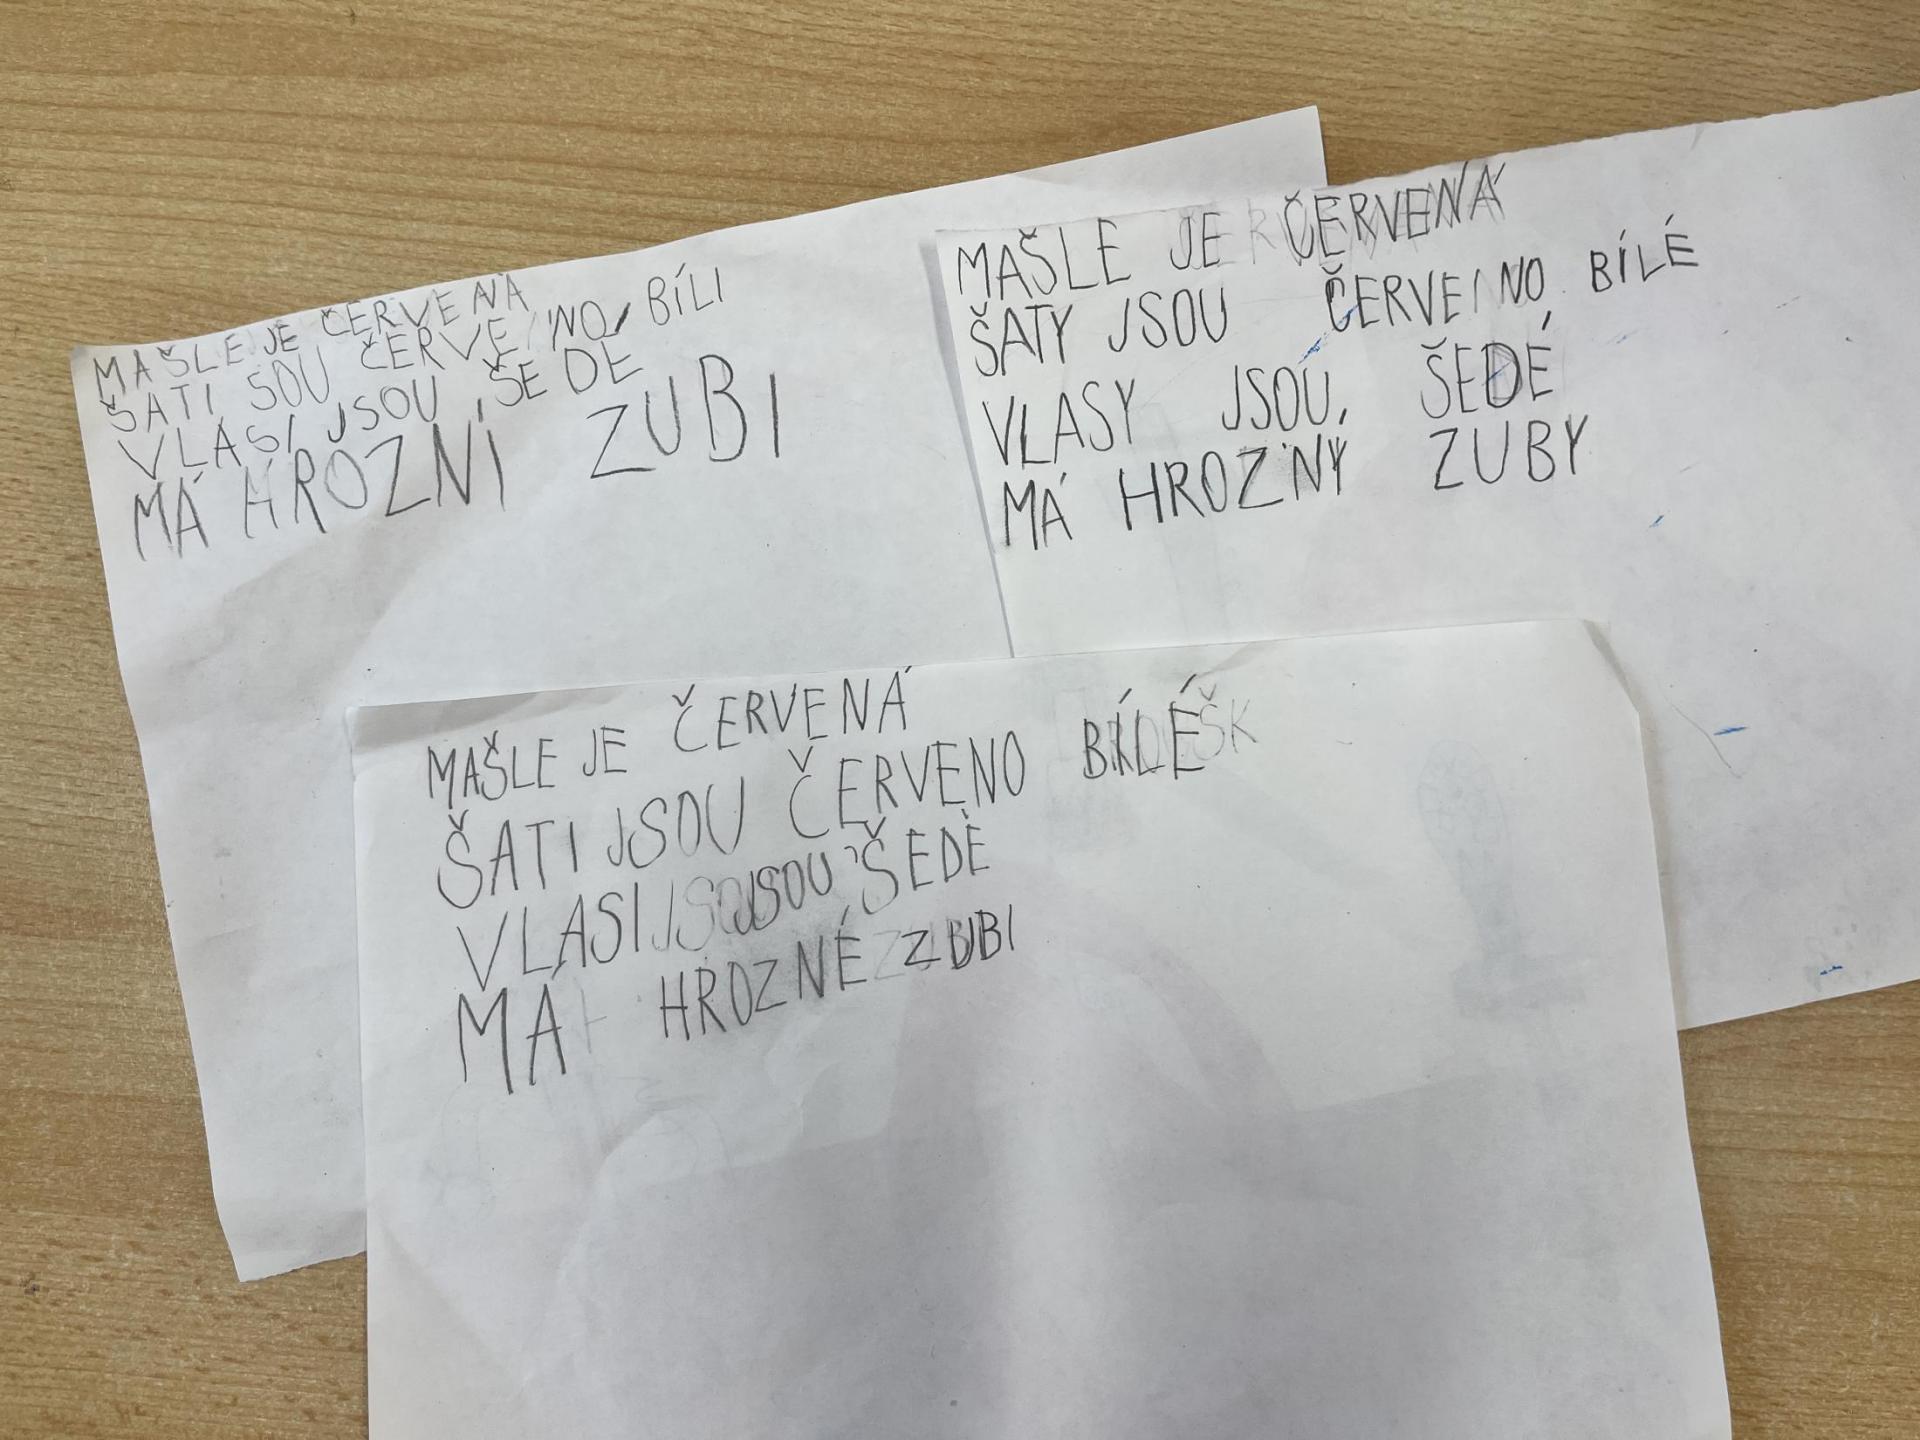 MAŠLE JE ČERVENÁ
ŠATI SOU ČERVENO BÍLI
VLASI JSOU ŠEDE
MÁ HROZNÍ ZUBI
MAŠLE JE ČERVENÁ
ŠATY JSOU ČERVENO BÍLÉ
VLASY JSOU ŠEDÉ
MÁ HROZNÝ ZUBY
MAŠLE JE ČERVENÁ
ŠATI JSOU ČERVENO BÍLÉ
VLASI JSOU ŠEDÉ
MÁ HROZNÉ ZUBI